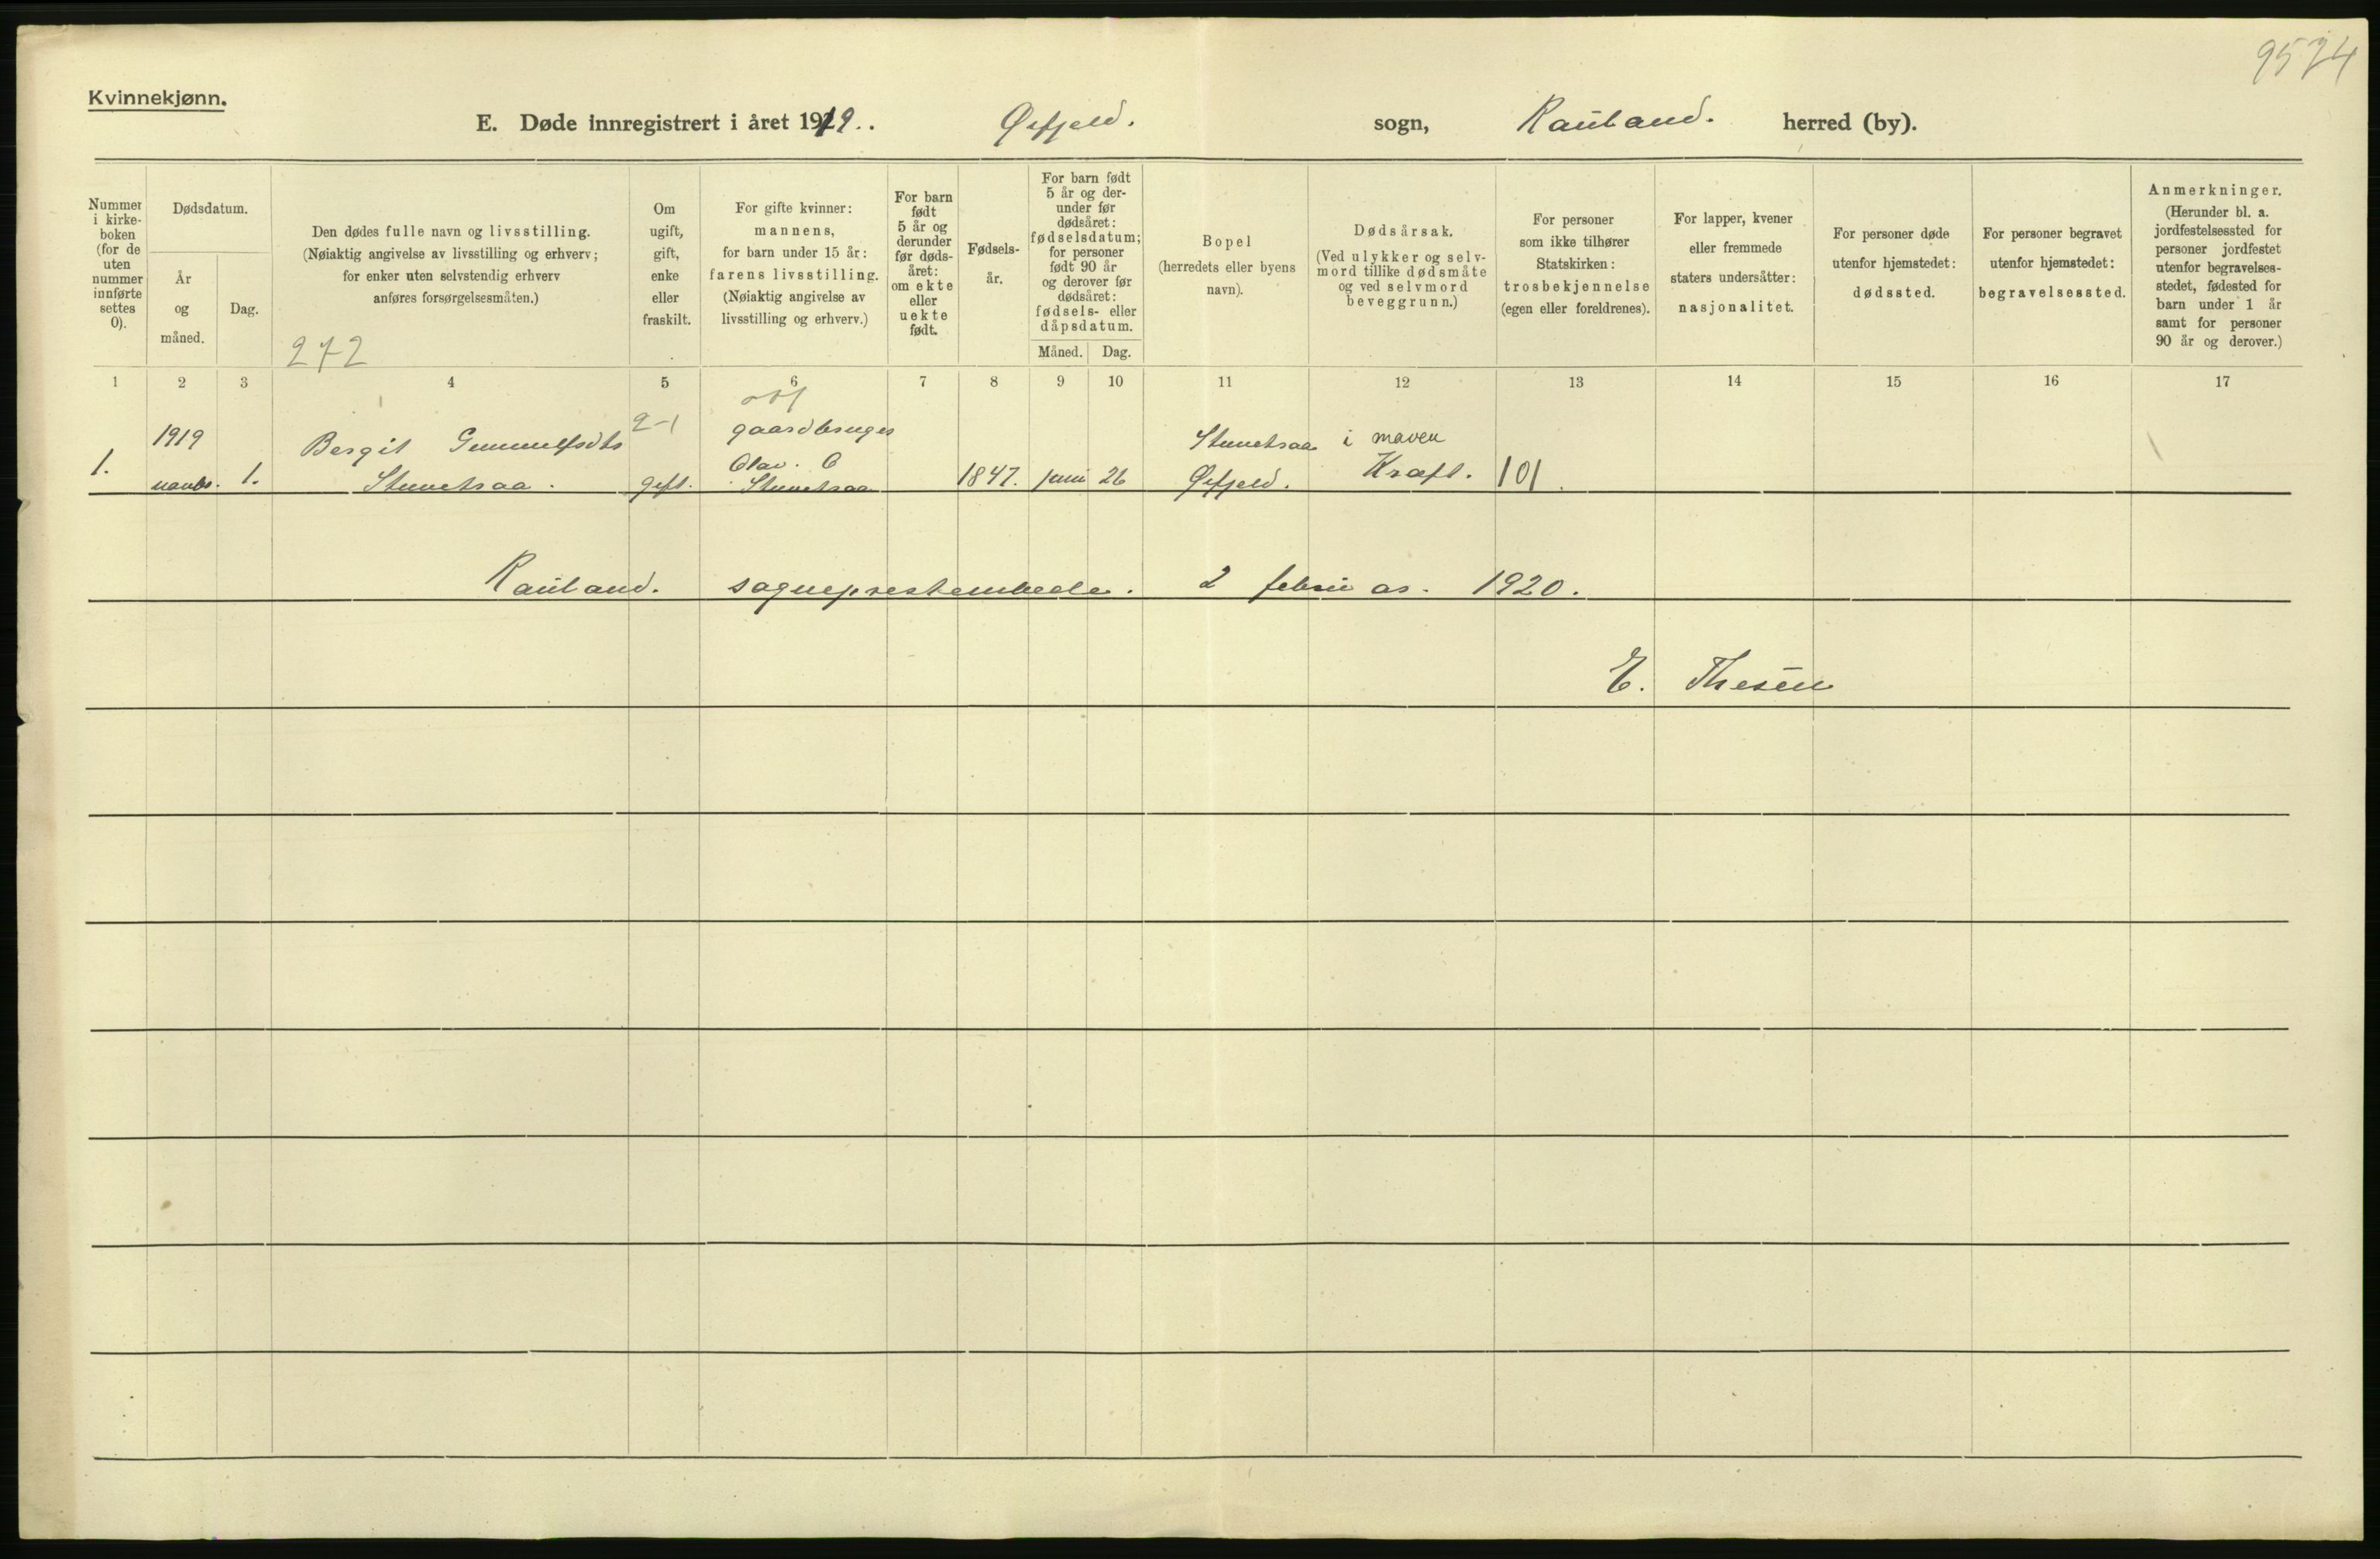 9574
Kvinnekjønn.
E. Døde innregistrert i året 1919. Øifjeld. sogn, Rauland. herred (by).
Nummer i kirkeboken (for de uten nummer innførte settes 0).
Dødsdatum.
År og måned.
Dag.
Den dødes fulle navn og livsstilling.
(Nøiaktig angivelse av livsstilling og erhverv;
for enker uten selvstendig erhverv
anføres forsørgelsesmåten.)
272
Om ugift, gift, enke eller fraskilt.
For gifte kvinner:
mannens,
for barn under 15 år:
farens livsstilling.
(Nøiaktig angivelse av
livsstilling og erhverv.)
For barn født 5 år og derunder før dødsåret: om ekte eller uekte født.
Fødselsår.
For barn født 5 år og derunder før dødsåret: fødselsdatum; for personer født 90 år og derover før dødsåret: fødsels- eller dåpsdatum.
Måned. Dag.
Bopel
(herredets eller byens
navn).
Dødsårsak.
(Ved ulykker og selvmord tillike dødsmåte og ved selvmord beveggrunn.)
For personer
som ikke tilhører
Statskirken:
trosbekjennelse
(egen eller foreldrenes).
For lapper, kvener
eller fremmede
staters undersåtter:
nasjonalitet.
For personer døde
utenfor hjemstedet:
dødssted.
For personer begravet
utenfor hjemstedet:
begravelsessted.
Anmerkninger.
(Herunder bl. a.
jordfestelsessted for
personer jordfestet
utenfor begravelsesstedet, fødested for
barn under 1 år
samt for personer
90 år og derover.)
1 2 3 4 5 6 7 8 9 10 11 12 13 14 15 16 17
1919 Bergit Gunnulfsdtr 2-1 gaardbruger i maven
1. novbr. 1. gift. Olav. O 1847. juni 26 Øifjeld. Kræft. 101
Rauland. sogneprestembede. 2 februar. 1920.
E. Thesen